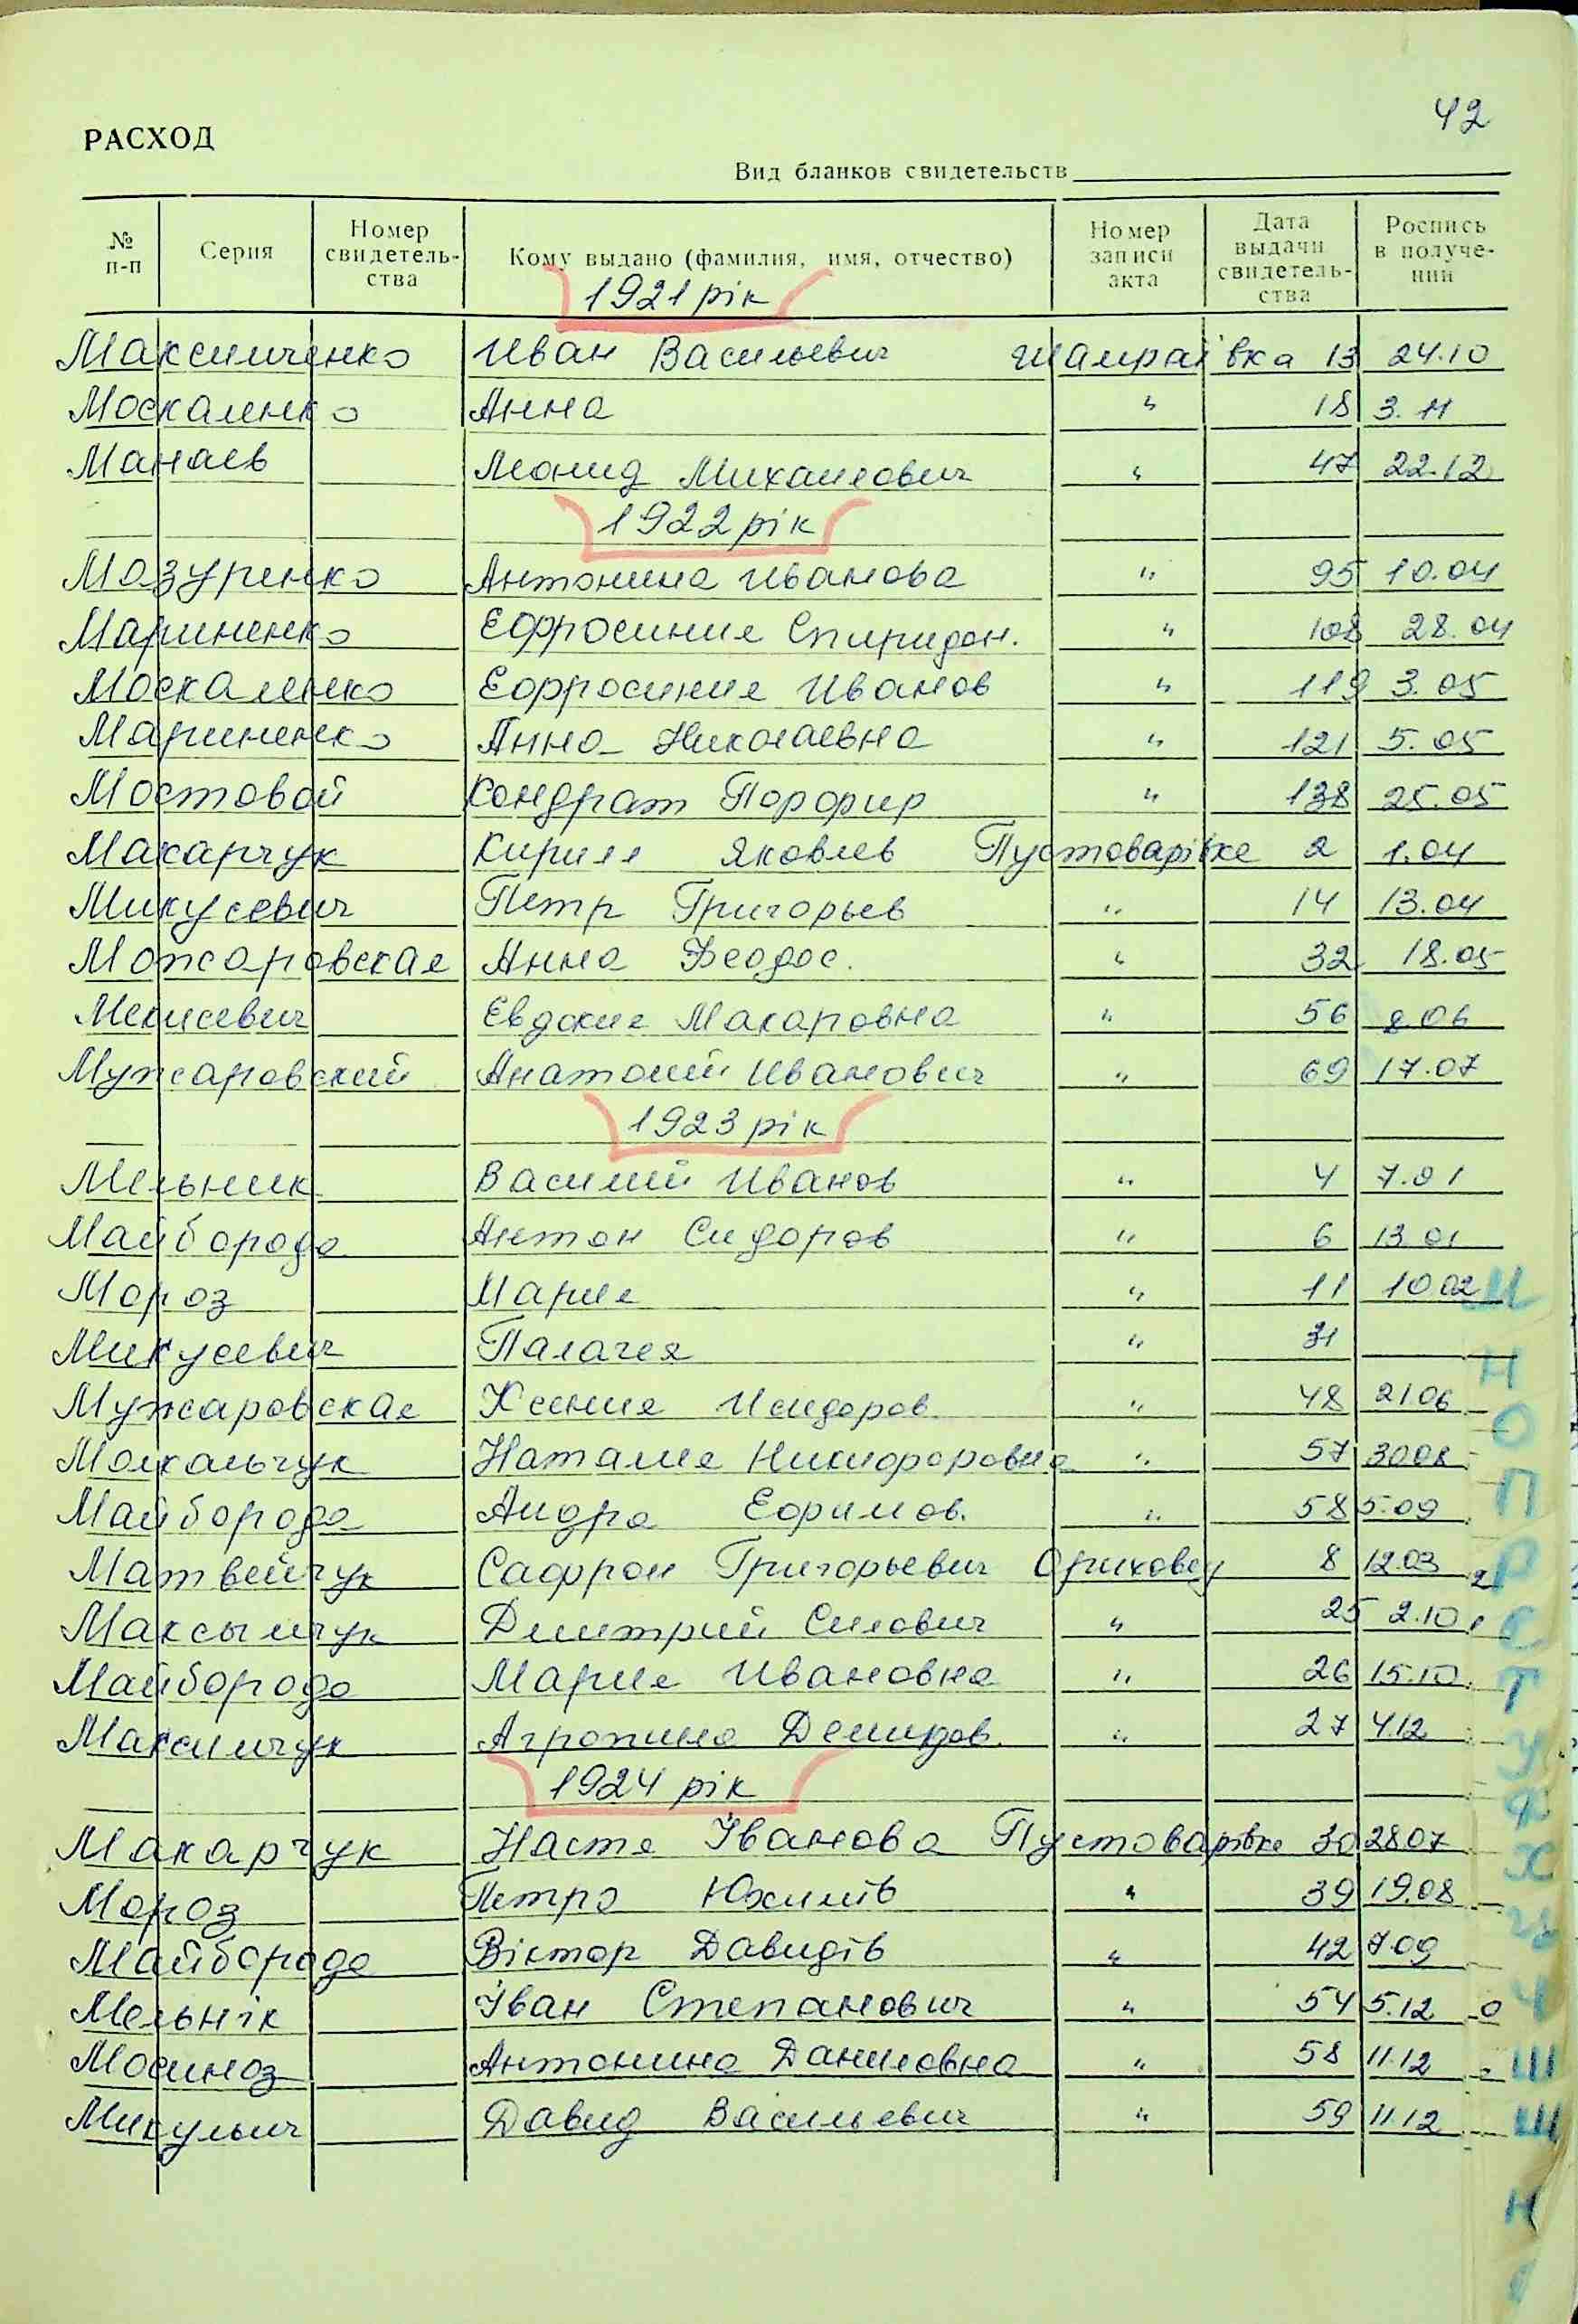 42
РАСХОД
Вид бланков свидетельств
№ п-п Серия Номер свидетель-ства Кому выдано (фамилия, имя, отчество) Номер записи акта Дата выдачи свидетель-ства Роспись в получе-нии
1921 рік
Максимченко Иван Васильевич Шамраївка 13 24.10
Москаленко Анна " 18 3.11
Манаев Леонид Михайлович " 47 22.12
1922 рік
Мазуренко Антонина Иванова " 95 10.04
Мариненко Ефросиния Спиридон. " 108 28.04
Москаленко Ефросиния Иванов " 119 3.05
Мариненко Анна Николаевна " 121 5.05
Мостовой Кондрат Порфир " 138 25.05
Макарчук Кирилл Яковлев Пустоварівка 2 1.04
Микусевич Петр Григорьев " 14 13.04
Можаровская Анна Феодос. " 32 18.05
Мекусевич Евдокия Макаровна " 56 8.06
Мужаровский Анатолий Иванович " 69 17.07
1923 рік
Мельник Василий Иванов " 4 7.01
Майборода Антон Сидоров " 6 13.01
Мороз Мария " 11 10 02
Микусевич Палагея " 31
Мужаровская Ксения Исидоров. " 48 21 06
Наталия Никифоровна " 57 30 08
Майборода Андра Ефимов. " 58 5.09
Матвейчук Сафрон Григорьевич Ориховец 8 12.03
Максымчук Дмитрий Силович " 25 2.10
Майборода Мария Ивановна " 26 15.10
Максимчук Агропина Демидов. " 27 4.12
1924 рік
Макарчук Настя Іванова Пустоварівка 30 28 07
Мороз Петро Юхимів " 39 19.08
Майборода Віктор Давидів " 42 7 09
Мельнік Іван Степанович " 54 5.12
Мосиноз Антонина Даниловна " 58 11.12
Микульич Давид Васильевич " 59 11.12
М
Н
О
П
Р
С
Т
У
Ф
Х
Ц
Ч
Ш
Щ